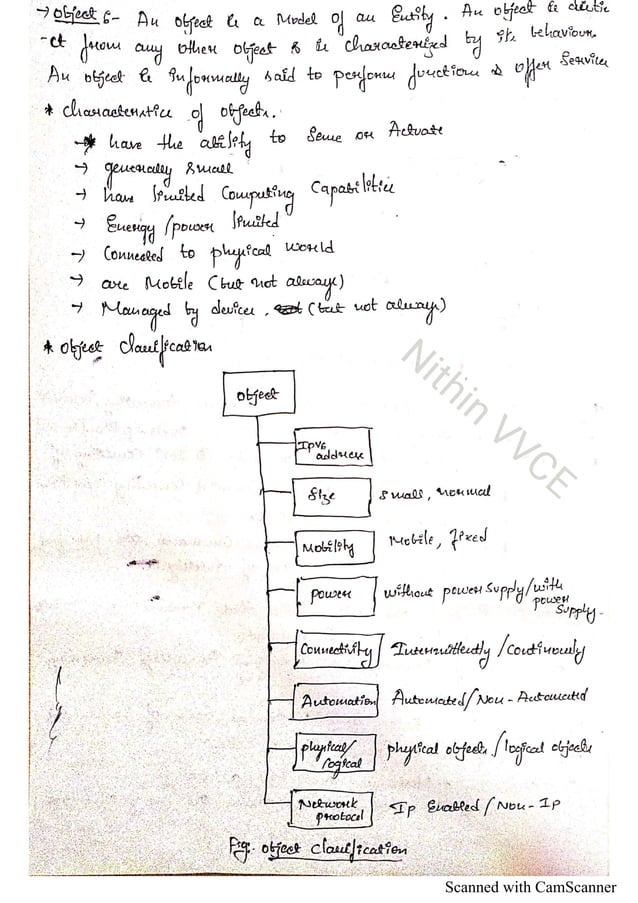 → object :- An object is a Model of an Entity. An object is distin
-ct from any other object & is characterized by its behaviour.
An object is informally said to perform functions & offer Services
* characteristics of objects.
→ have the ability to sense or Actuate
→ generally small
→ have limited Computing Capabilities
→ Energy/power limited
→ Connected to physical world
→ are Mobile (but not always)
→ Managed by devices, (but not always)
* object classification
object
IPV6 address
Size small, normal
Mobility Mobile, Fixed
power without power supply/with power supply.
Connectivity Intermittently/continuously
Automation Automated/Non-Automated
physical/logical physical objects/logical objects
Network protocol Ip Enabled/Non-Ip
Fig:- object classification
Nithin VVCE
Scanned with CamScanner